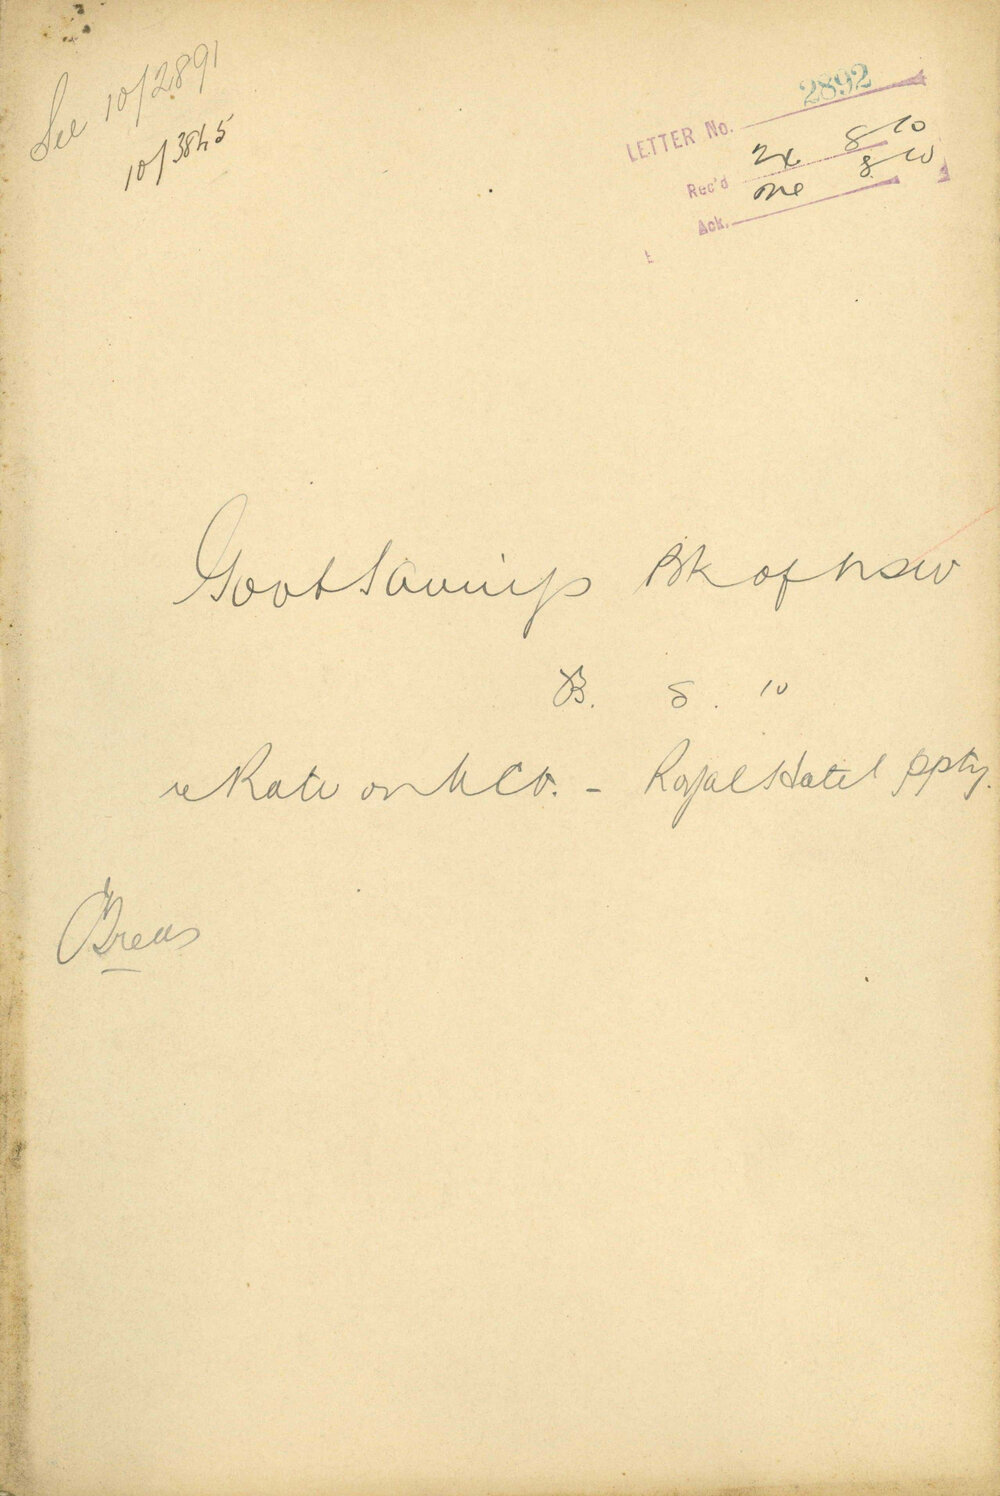 See 10/2891
10/3845
LETTER No. 2892
Rec'd 8 10
Ack. 8 10
Govt Savings Bk of NSW
8. 10
re Rate on - Royal Hotel ppty.